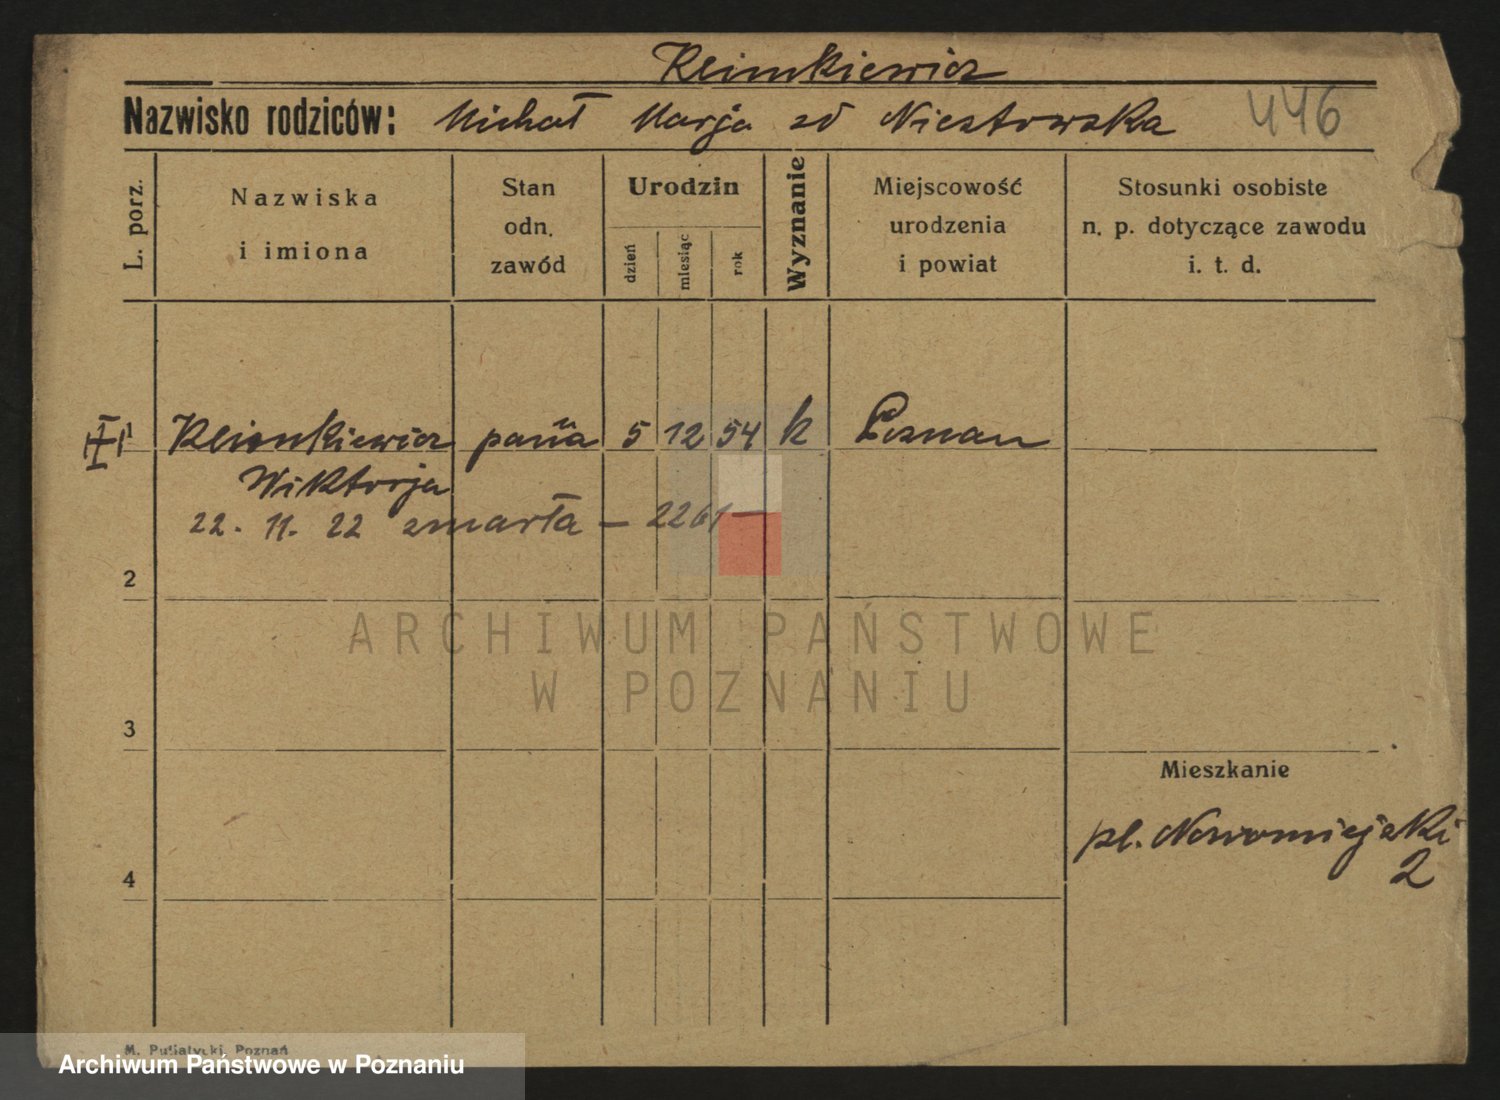 Klimkiewicz
Nazwisko rodziców: Michał Marja zd Niestowska 446
L. porz.
Nazwiska
i imiona
Stan
odn.
zawód
Urodzin
dzień
miesiąc
rok
Wyznanie
Miejscowość
urodzenia
i powiat
Stosunki osobiste
n. p. dotyczące zawodu
i. t. d.
1 Klimkiewicz panna 5 12 54 k Poznań
Wiktorja
22. 11. 22 zmarła – 2261 –
2
3
Mieszkanie
pl. Nowomiejski
2
4
M. Putiatycki, Poznań
ARCHIWUM PAŃSTWOWE
W POZNANIU
Archiwum Państwowe w Poznaniu